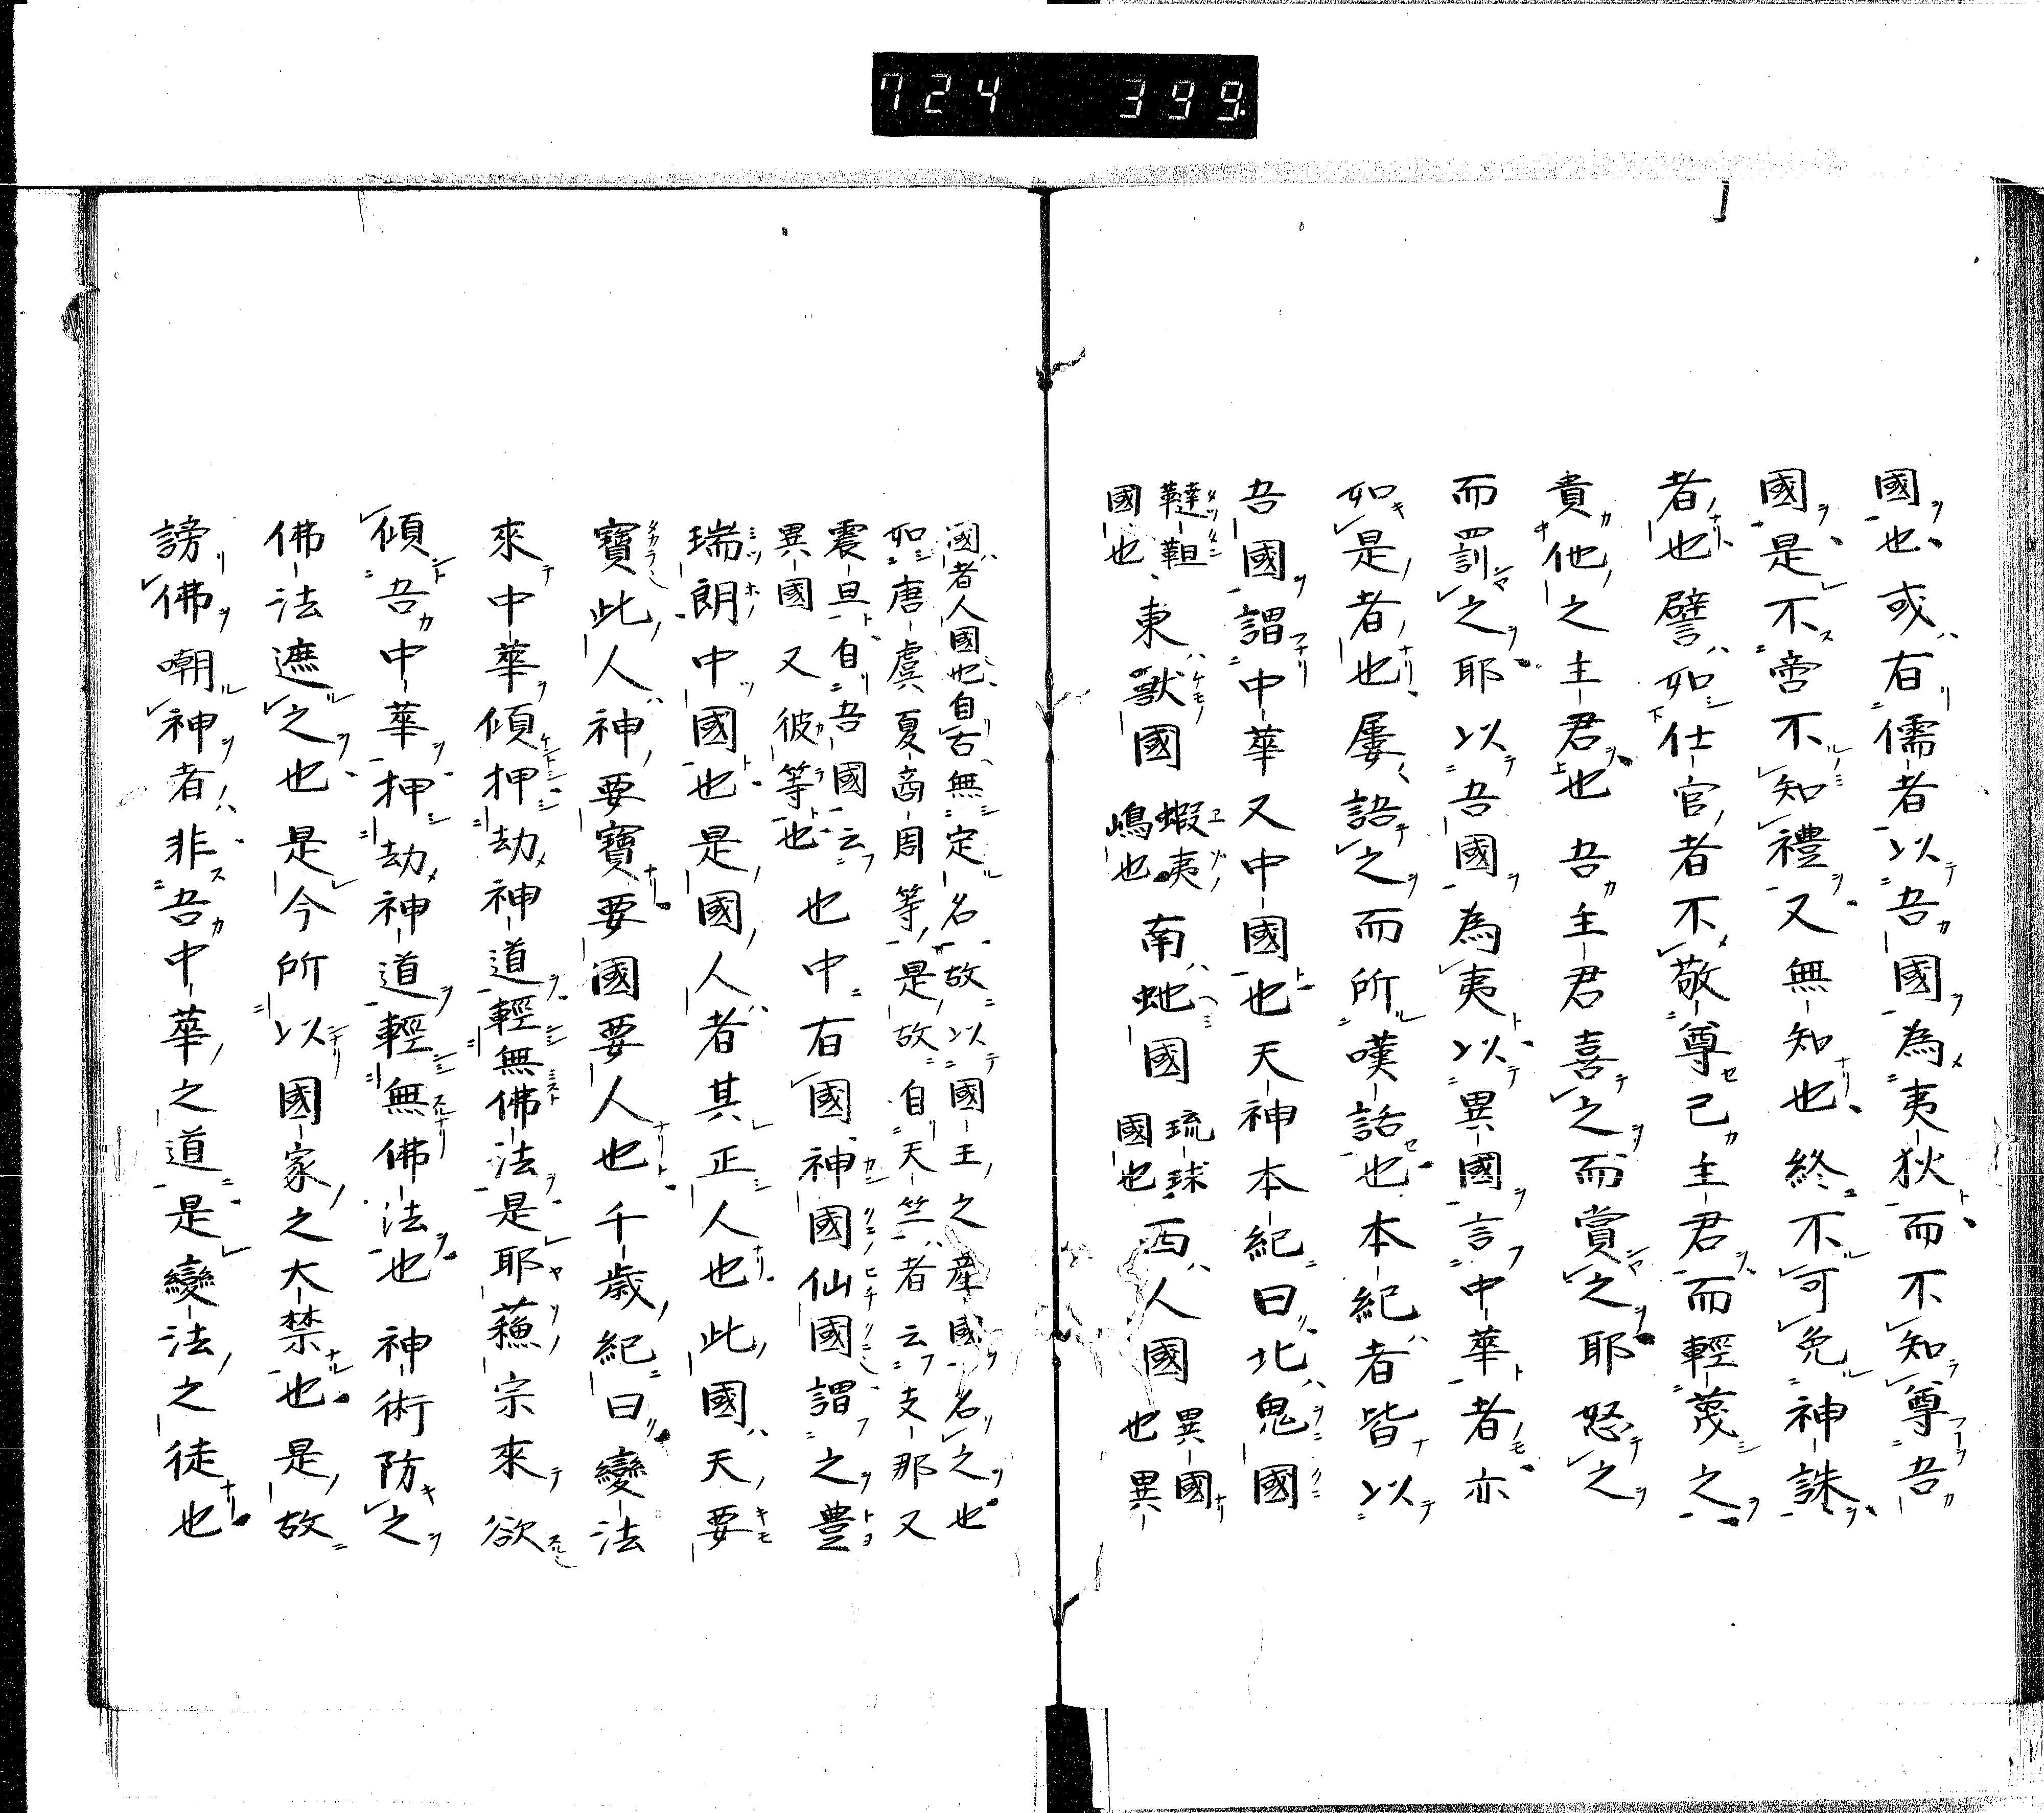 724 399.
國也或有儒者以吾國為夷狄而不知尊吾
國是不啻不知禮又無知也終不可免神誅
者也譬如仕官者不敬尊己主君而輕蔑之
貴他之主君也吾主君喜之而賞之耶怒之
而罰之耶以吾國為夷以異國言中華者亦
如是者也屢語之而所嘆話也本紀者皆以
吾國謂中華又中國也天神本紀曰北鬼國
韃靼國也東獸國蝦夷嶋也南虵國琉球國也西人國異國也異
國者人國也自古無定名故以國王之產國名之也
如唐虞夏商周等是故自天竺者云支那又
震旦自吾國云異國又彼等也也中有國神國仙國謂之豊
瑞朗中國也是國人者其正人也此國天要
寶此人神要寶要國要人也千歲紀曰變法
來中華傾押劫神道輕無佛法是耶蘓宗來欲
傾吾中華押劫神道輕無佛法也神術防之
佛法遮之也是今所以國家之大禁也是故
謗佛嘲神者非吾中華之道是變法之徒也